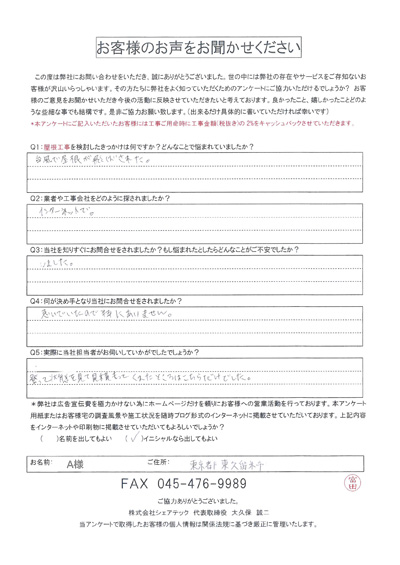 お客様のお声をお聞かせください
この度は弊社にお問い合わせをいただき、誠にありがとうございました。世の中には弊社の存在やサービスをご存知ないお
客様が沢山いらっしゃいます。その方たちに弊社をよく知っていただくためのアンケートにご協力いただけるでしょうか？ お客
様のご意見をお聞かせいただき今後の活動に反映させていきたいと考えております。良かったこと。嬉しかったことどのよ
うな些細な事でも結構です。是非ご協力お願い致します。(出来るだけ具体的に書いていただければ幸いです)
*本アンケートにご記入いただいたお客様には工事ご用命時に工事金額(税抜き)の2%をキャッシュバックさせていただきます。
Q1:屋根工事を検討したきっかけは何ですか？どんなことで悩まれていましたか？
台風で屋根が飛ばされた。
Q2:業者や工事会社をどのように探されましたか？
インターネットで。
Q3:当社を知りすぐにお問合せをされましたか？もし悩まれたとしたらどんなことがご不安でしたか？
しました。
Q4:何が決め手となり当社にお問合せをされましたか？
急いでいたので特にありません。
Q5:実際に当社担当者がお伺いしていかがでしたでしょうか？
くれたところはこちらだけでした。
＊弊社は広告宣伝費を極力かけない為にホームページだけを頼りにお客様への営業活動を行っております。本アンケート
用紙またはお客様宅の調査風景や施工状況を随時ブログ形式のインターネットに掲載させていただいております。上記内容
をインターネットや印刷物に掲載させていただいてもよろしいでしょうか？
( )名前を出してもよい (✓)イニシャルなら出してもよい
お名前: A様 ご住所: 東京都東久留米市
FAX 045-476-9989
ご協力ありがとうございました。
株式会社シェアテック 代表取締役 大久保 誠二
当アンケートで取得したお客様の個人情報は関係法規に基づき厳正に管理いたします。